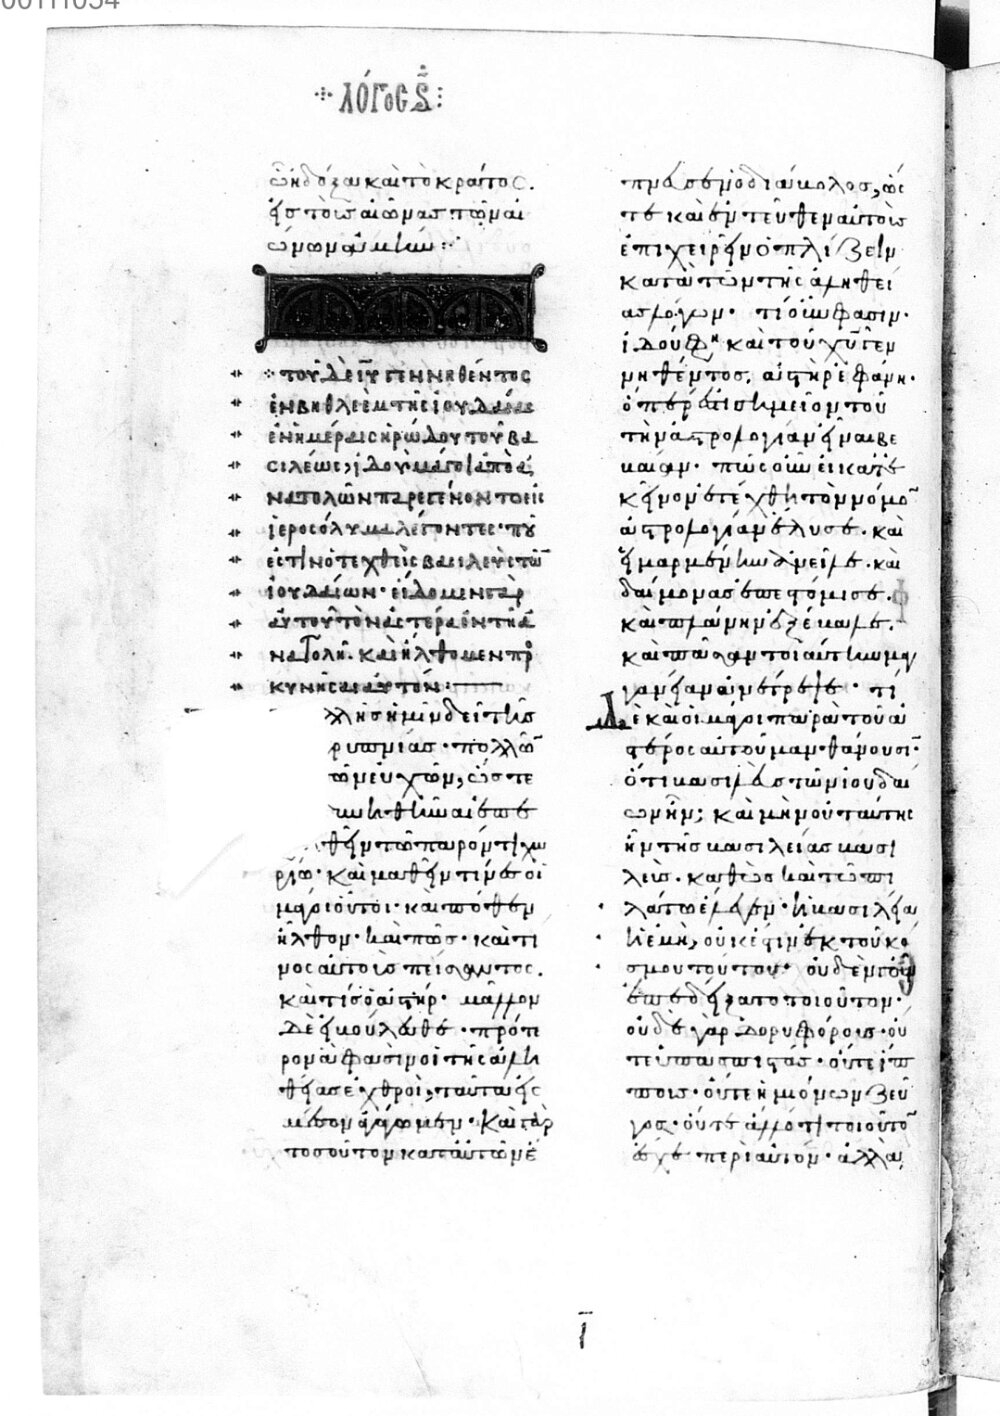 λόγος ϛ̅
ᾧ ἡ δόξα καὶ τὸ κράτος.
εἰς τοὺς αἰῶνας τῶν αἰ
ώνων ἀμήν:
τοῦ δὲ ἰ̅υ̅ γεννηθέντος
ἐν βηθλεὲμ τῆς ἰουδαίας
ἐν ἡμέραις ἡρώδου τοῦ βα
σιλέως, ἰδοὺ μάγοι ἀπὸ ἀ
νατολῶν παρεγένοντο εἰς
ἱεροσόλυμα λέγοντες· ποῦ
ἐστὶν ὁ τεχθεὶς βασιλεὺς τῶ̅
ἰουδαίων· εἴδομεν γὰρ
αὐτοῦ τὸν ἀστέρα ἐν τῆ ἀ
νατολῆ. καὶ ἤλθομεν πρὸ
κυνῆσαι αὐτόν·
λῆς ἡμῖν δεῖ τῆς
ρυπνίας· πολλῶ̅
τῶν εὐχῶν, ὥστε
νηθῆναι ἐπε
θεῖν τῶ παρόντι χω
ρίω· καὶ μαθεῖν τίνες οἱ
μάγοι οὗτοι· καὶ πόθεν
ἦλθον· καὶ πῶς· καὶ τί
νος αὐτοὺς πείσαντος.
καὶ τίς ὁ ἀστήρ· μᾶλλον
δὲ εἰ βούλεσθε· πρότε
ρον ἅ φασιν οἱ τῆς ἀλη
θείας ἐχθροὶ, ταῦτα εἰς
μέσον ἀγάγωμεν· καὶ γὰρ
τοσοῦτον κατ' αὐτῶν ἔ
πνευσεν ὁ διάβολος, ὥς
τε καὶ ἐντεῦθεν αὐτοὺς
ἐπιχειρεῖν ὁπλίζειν
κατὰ τῶν τῆς ἀληθεί
ας λόγων· τί οὖν φασιν·
ἰδοὺ φη καὶ τοῦ χ̅υ̅ γεν
νηθέντος, ἀστὴρ ἐφάνη·
ὅπερ ἐστὶ σημεῖον τοῦ
τὴν ἀστρολογίαν εἶναι βε
βαίαν· πῶς οὖν εἰ κατ' ἐ
κεῖνον ἐτέχθη τὸν νόμο̅
ἀστρολογίαν ἔλυσε. καὶ
εἱμαρμένην ἀνεῖλε. καὶ
δαίμονας ἐπεστόμισε.
καὶ πλάνην ἐξέβαλε.
καὶ πᾶσαν τοιαύτην μαγ
γανείαν ἀνέτρεψε· τί
δὲ καὶ οἱ μάγοι παρὰ τοῦ ἀ
στέρος αὐτοῦ μανθάνουσι̅·
ὅτι βασιλεὺς τῶν ἰουδαί
ων ἦν; καὶ μὴν οὐ ταύτης
ἦν τῆς βασιλείας βασι
λεύς. καθὼς καὶ τῶ πι
λάτω ἔλεγεν· ἡ βασιλεία
ἡ ἐμὴ, οὐκ ἔστιν ἐκ τοῦ κό
σμου τούτου· οὐδὲν γοῦν
ἐπεδείξατο τοιοῦτον·
οὐδὲ γὰρ δορυφόρους· οὐ
τε ὑπασπιστάς· οὔτε ἵπ
πους· οὔτε ἡμιόνων ζεῦ
γος· οὔτε ἄλλο τι τοιοῦτο̅
ἔσχε περὶ αὐτόν· ἀλλὰ
ι̅